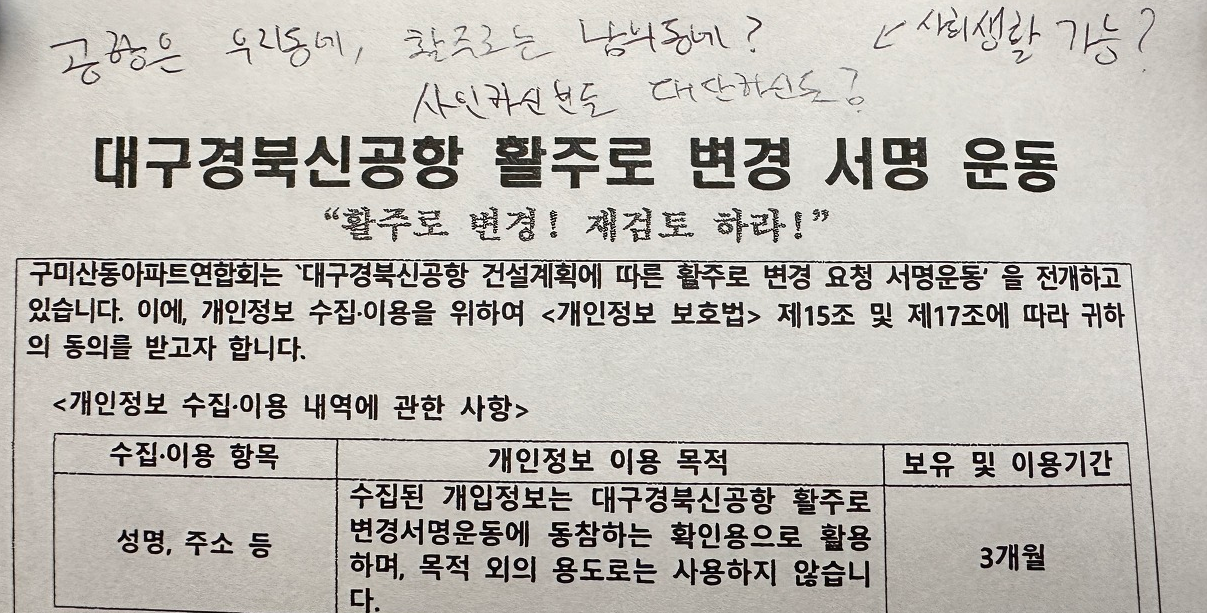 공항은 우리동네, 활주로는 남의동네? ↙ 사회생활 가능?
사인하신분들 대단하신듯?
대구경북신공항 활주로 변경 서명 운동
“활주로 변경! 재검토 하라!”
구미산동아파트연합회는 `대구경북신공항 건설계획에 따른 활주로 변경 요청 서명운동’ 을 전개하고
있습니다. 이에, 개인정보 수집·이용을 위하여 <개인정보 보호법> 제15조 및 제17조에 따라 귀하
의 동의를 받고자 합니다.
<개인정보 수집·이용 내역에 관한 사항>
수집·이용 항목 개인정보 이용 목적 보유 및 이용기간
수집된 개입정보는 대구경북신공항 활주로
변경서명운동에 동참하는 확인용으로 활용
성명, 주소 등 3개월
하며, 목적 외의 용도로는 사용하지 않습니
다.